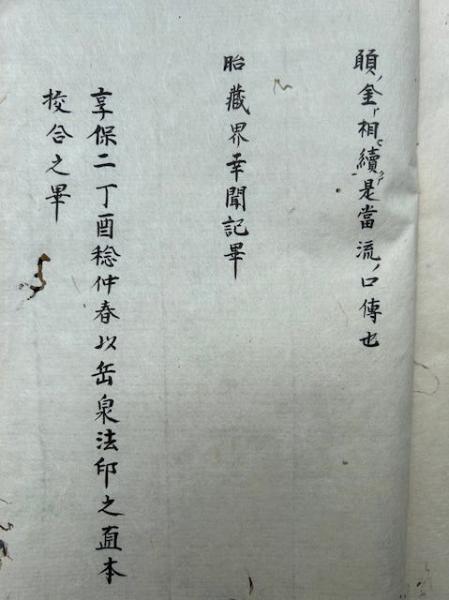 頤ノ金ノ相續ヲ是當流ノ口傳也
胎藏界幸聞記畢
享保二丁酉稔仲春以岳泉法印之直本
挍合之畢